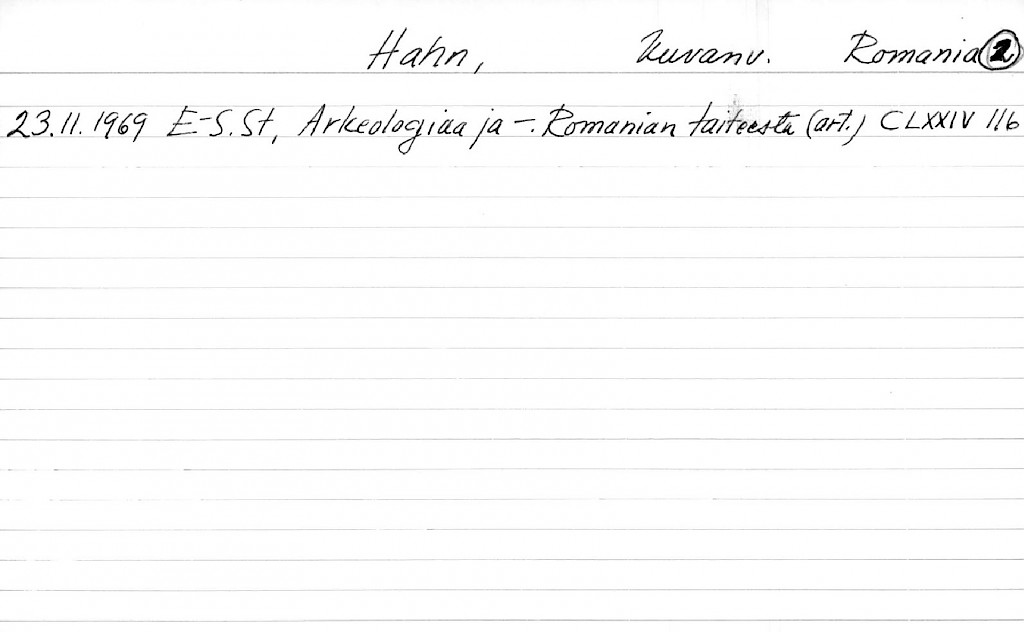 Hahn, Kuvanv. Romania 2
23.11.1969 E-S.St, Arkeologiaa ja -. Romanian taiteesta (art.) CLXXIV 116